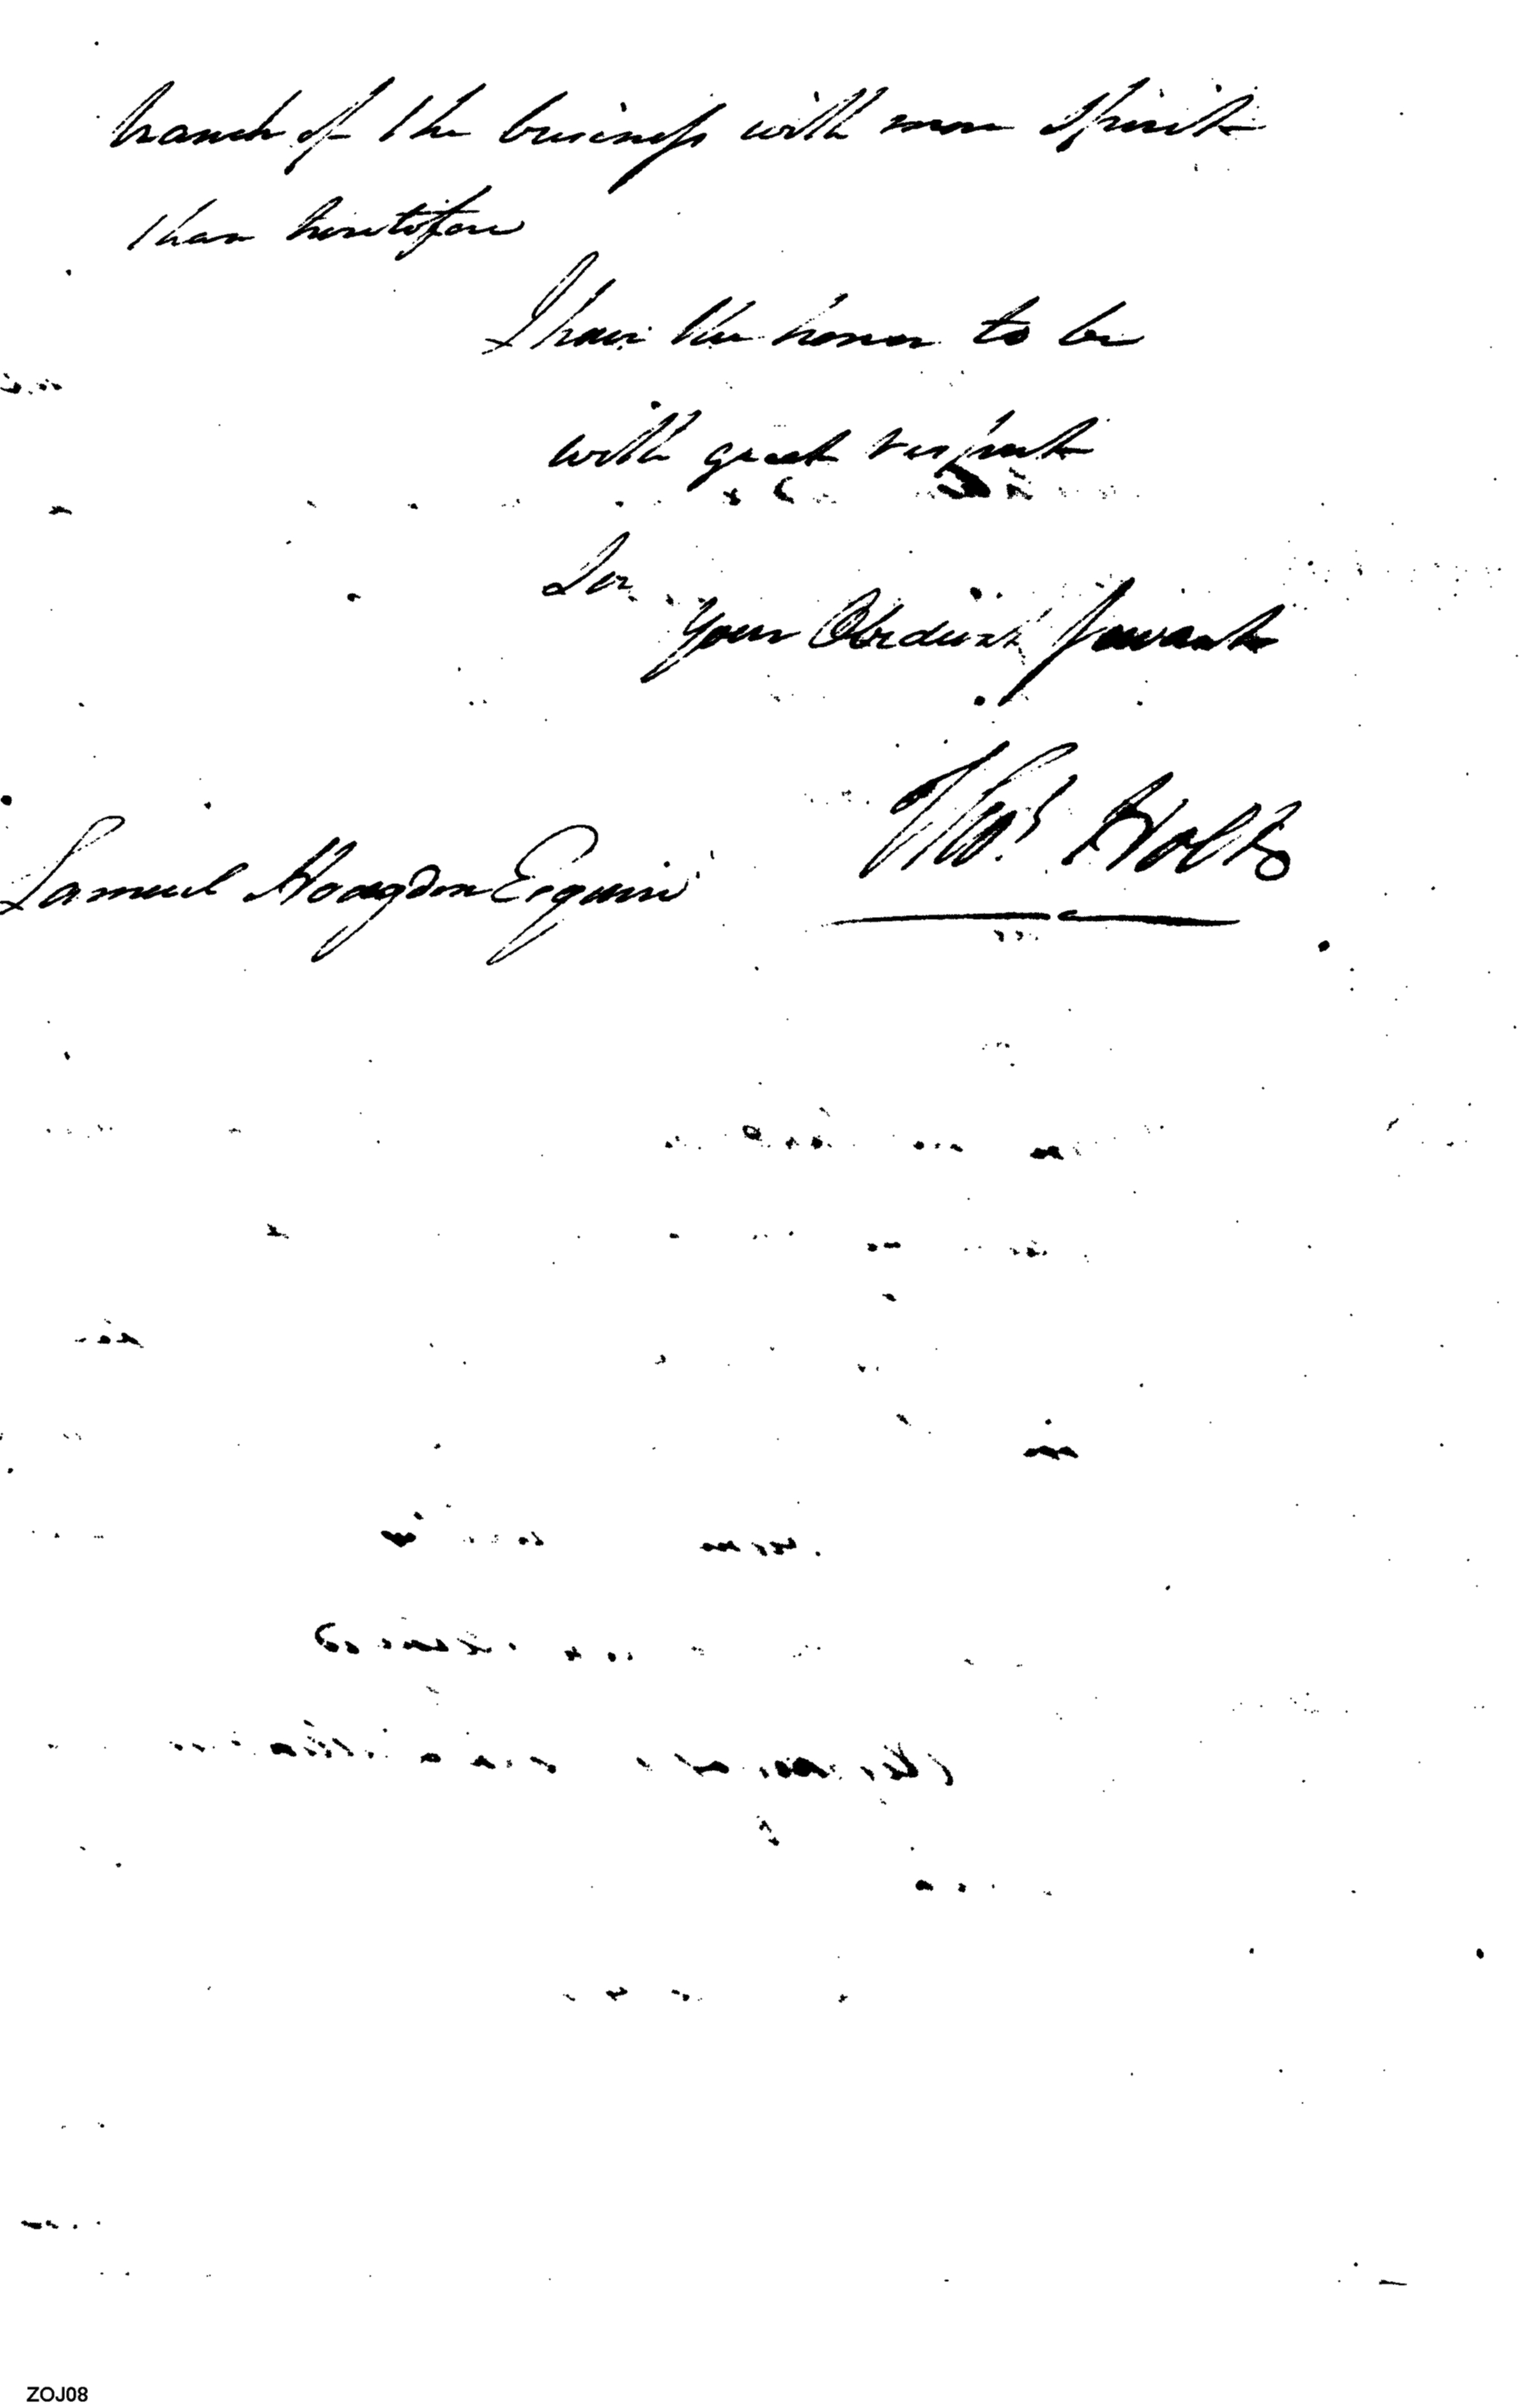 branch of the business with more spirit
than heretofore
I have the honor to be
with great respect
Sir
Your Obedient Servant
Samuel Hodgdon Esquire
ZOJ08